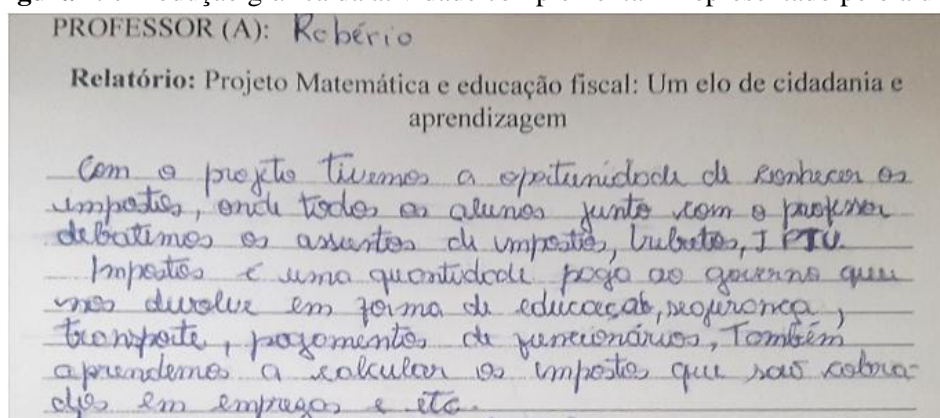 PROFESSOR (A): Robério
Relatório: Projeto Matemática e educação fiscal: Um elo de cidadania e
aprendizagem
Com o projeto tivemos a opoitunidade de conhecer os
impostos, onde todos os alunos junto com o professor
debatimos os assuntos de impostos, tributos, IPTU.
Impostos é uma quantidade pago ao governo que
nos devolve em forma de educação, segurança,
transporte, pagamentos de funcionários, Também
aprendemos a calcular os impostos que são cobra-
dos em empregos e etc.